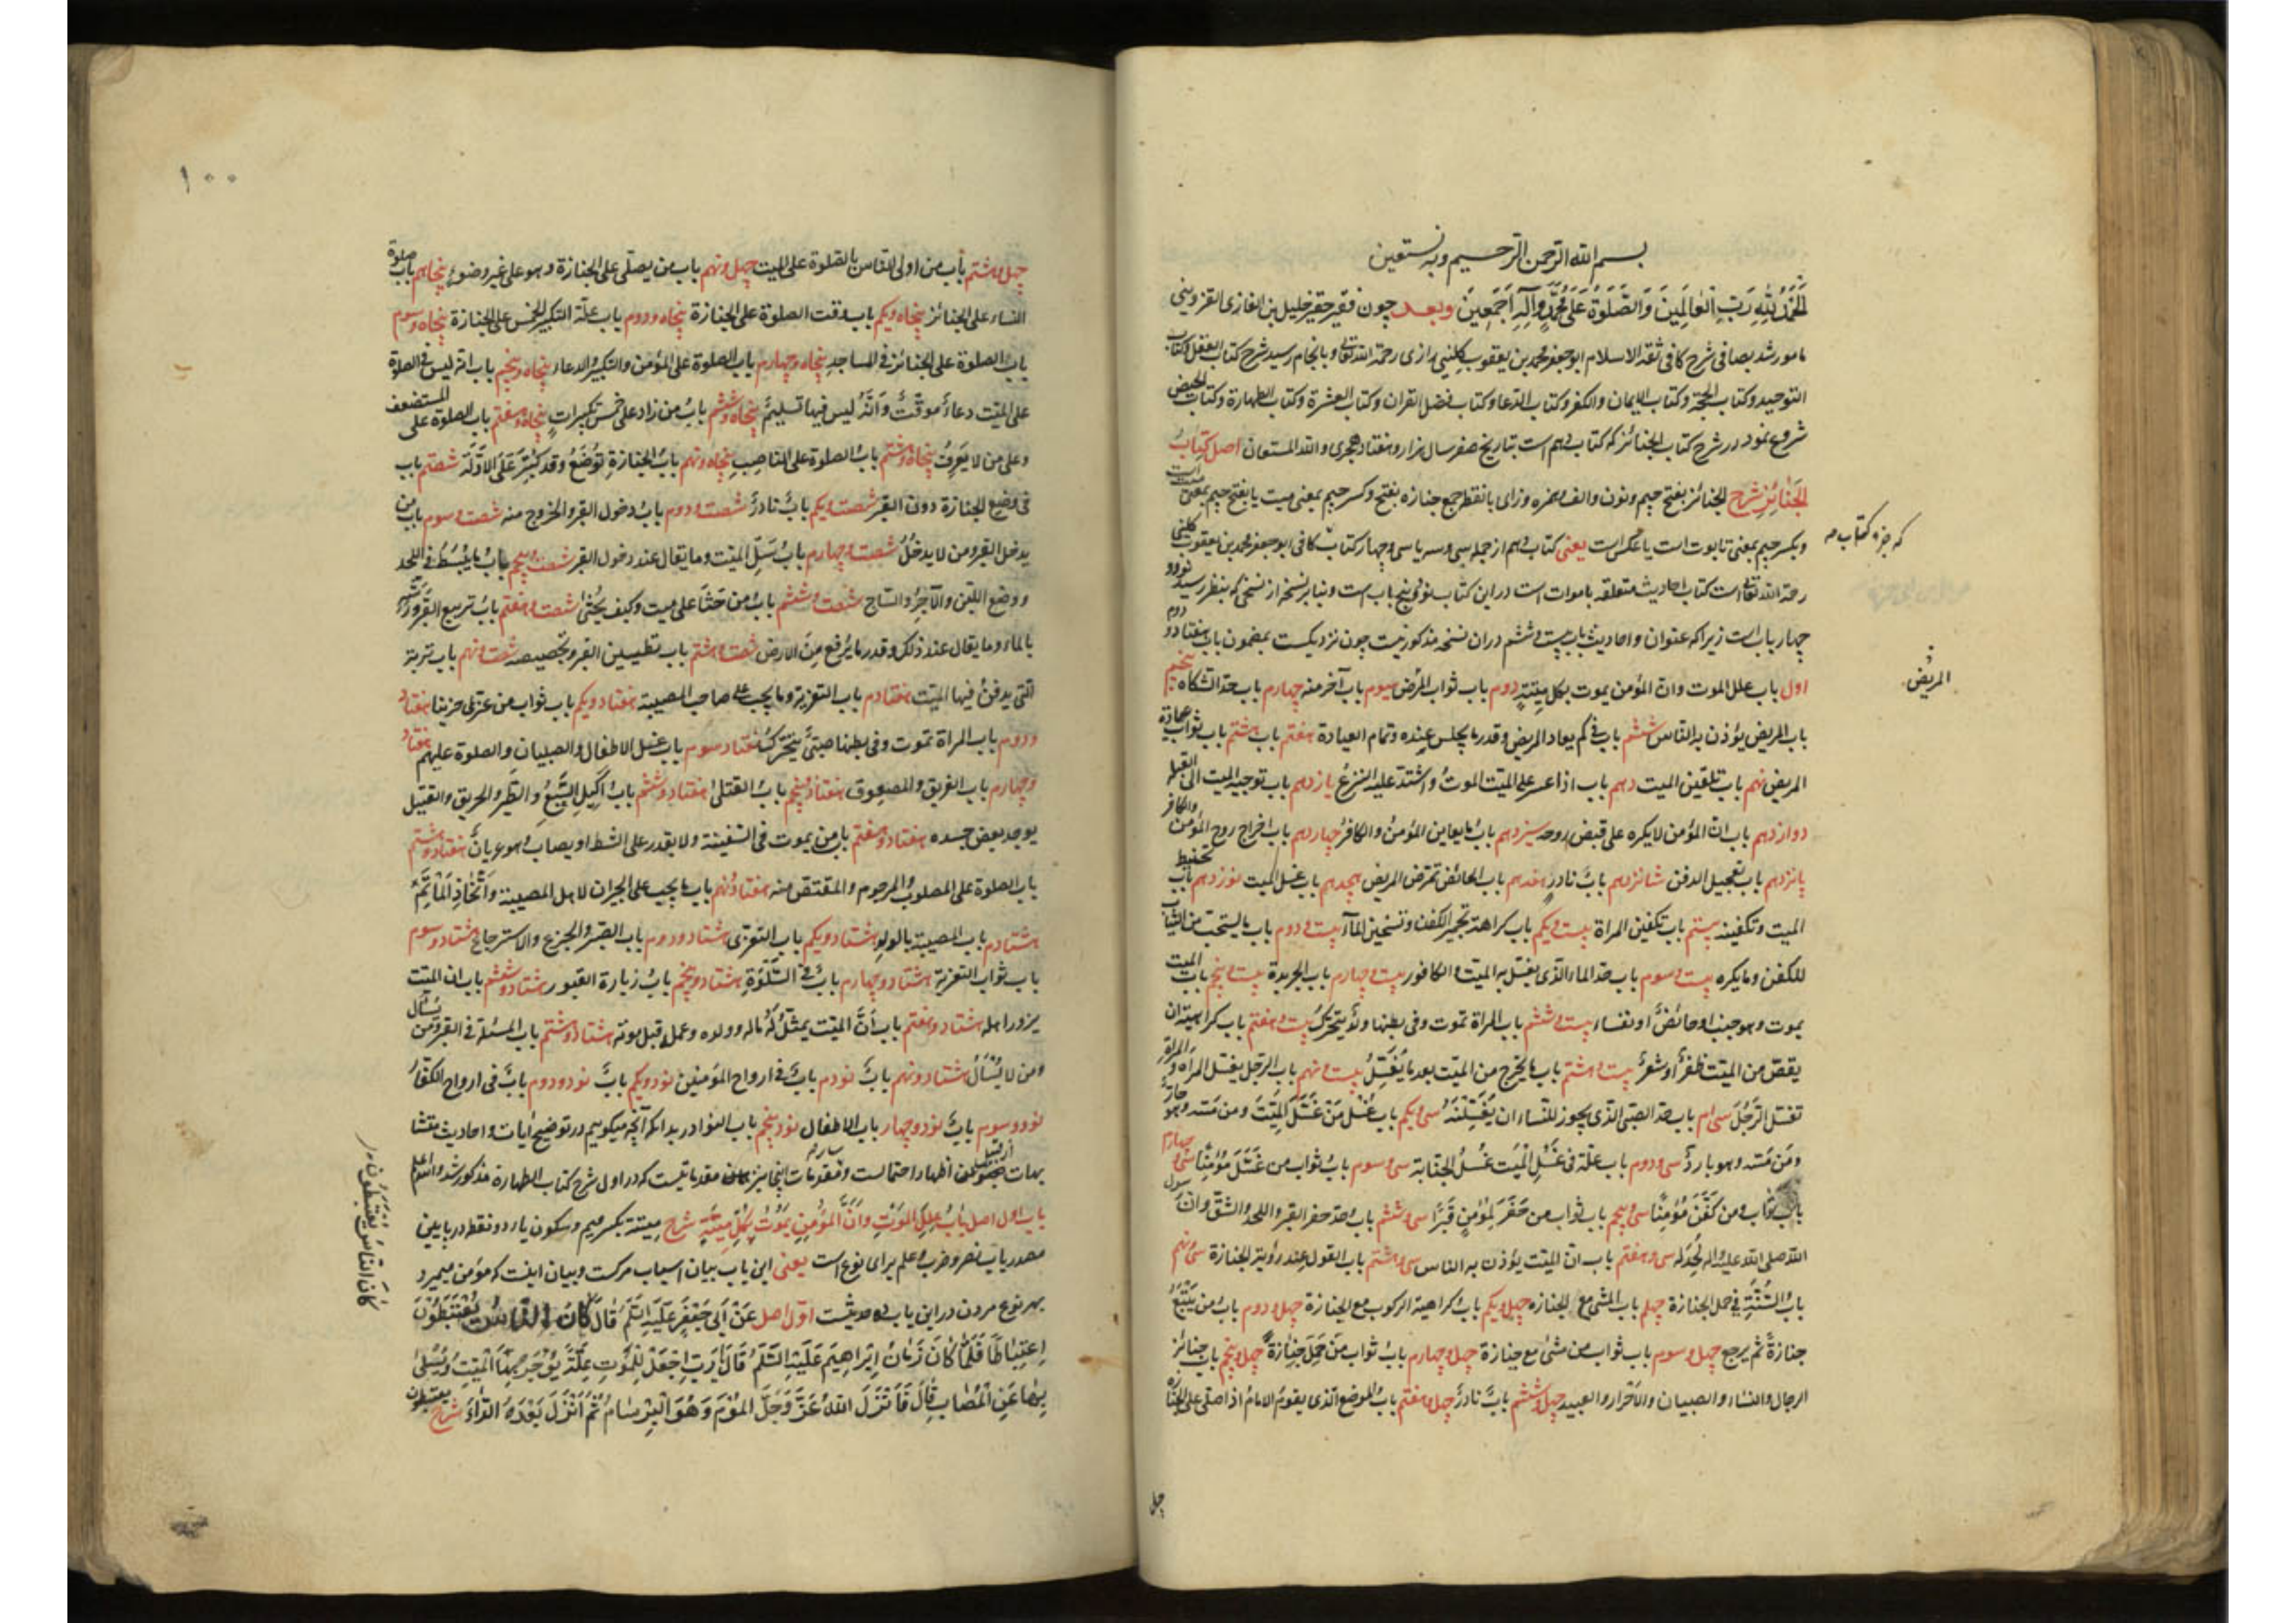 بسم الله الرحمن الرحيم وبه نستعين
الحمد لله رب العالمين والصلوة على محمد وآله اجمعين وبعد چون فقير حقير خليل بن الغازى القزوينى
مامور شد بصافى شرح كافى ثقة الاسلام ابو جعفر محمد بن يعقوب كلينى رازى رحمه الله تعالى و بانجام رسيد شرح كتاب العقل وكتاب
التوحيد وكتاب الحجة وكتاب الايمان والكفر وكتاب الدعا وكتاب فضل القران وكتاب العشرة وكتاب الطهارة وكتاب الحيض
شروع نمود در شرح كتاب الجنائز كه كتاب دهم است بتاريخ صفر سال هزار و هفتاد هجرى والله المستعان اصل كِتابُ
الجَنائِزِ شرح الجنائز بفتح جيم ونون والف وهمزه وزاى بانقطه جمع جنازه بفتح وكسر جيم بمعنى ميت يا بفتح جيم بمعنى ميت است
وبكسر جيم بمعنى تابوت است يا عكس است يعنى كتاب دهم از جمله سى وسه يا سى وچهار كتاب كافى ابو جعفر محمد بن يعقوب كلينى
كه جزء كتاب
رحمه الله تعالى است كتاب احاديث متعلقه باموات است در اين كتاب نود و پنج باب است و بنا بر نسخه از نسخى كه بنظر رسيد نود و
چهار باب است زيرا كه عنوان واحاديث باب بيست و ششم دران نسخه مذكور نيست چون نزديكست بمضمون باب هفتاد و دوم
اول باب علل الموت وان المؤمن يموت بكل ميتة دوم باب ثواب المرض سيوم باب آخر منه چهارم باب حد الشكاة پنجم
المريض
باب المريض يؤذن به الناس ششم باب فى كم يعاد المريض وقدر ما يجلس عنده وتمام العيادة هفتم باب هشتم باب ثواب عيادة
المريض نهم باب تلقين الميت دهم باب اذا عسر على الميت الموت واشتد عليه النزع يازدهم باب توجيه الميت الى القبلة
دوازدهم باب ان المؤمن لا يكره على قبض روحه سيزدهم باب ما يعاين المؤمن والكافر چهاردهم باب اخراج روح المؤمن والكافر
پانزدهم باب تعجيل الدفن شانزدهم باب نادر هفدهم باب الحائض تمرض المريض هجدهم باب غسل الميت نوزدهم باب تحنيط
الميت وتكفينه بيستم باب تكفين المراة بيست ويكم باب كراهة تجمير الكفن وتسخين الماآ بيست و دوم باب ما يستحب من الثياب
للكفن وما يكره بيست و سوم باب حد الماء الذى يغسل به الميت والكافور بيست و چهارم باب الجريدة بيست و پنجم باب الميت
يموت وهو جنب او حائض او نفساء بيست و ششم باب المراة تموت وفى بطنها ولد يتحرك بيست و هفتم باب كراهية ان
يقص من الميت ظفر او شعر بيست و هشتم باب ما يخرج من الميت بعد ما يغسل بيست و نهم باب الرجل يغسل المراة والمراة
تغسل الرجل سى ام باب حد الصبى الذى يجوز للنساء ان يغسلنه سى ويكم باب غسل من غسل الميت ومن مسه وهو حار
ومن مسه وهو بارد سى و دوم باب علة فى غسل الميت غسل الجنابة سى و سوم باب ثواب من غسل مؤمنا سى و چهارم
باب ثواب من كفن مؤمنا سى و پنجم باب ثواب من حفر لمؤمن قبرا سى و ششم باب حد حفر القبر واللحد والشق وان رسول
الله صلى الله عليه وآله لحد له سى و هفتم باب ان الميت يؤذن به الناس سى و هشتم باب القول عند رؤية الجنازة سى و نهم
باب السنة فى حمل الجنازة چهلم باب المشى مع الجنازه چهل ويكم باب كراهية الركوب مع الجنازة چهل و دوم باب من يتبع
جنازة ثم يرجع چهل و سوم باب ثواب من مشى مع جنازة چهل و چهارم باب ثواب من حمل جنازة چهل و پنجم باب جنائز
الرجال والنساء والصبيان والاحرار والعبيد چهل و ششم باب نادر چهل و هفتم باب الموضع الذى يقوم الامام اذا صلى على الجنازة
چهل
١٠٠
چهل و هشتم باب من اولى الناس بالصلوة على الميت چهل و نهم باب من يصلى على الجنازة وهو على غير وضوء پنجاهم باب صلوة
النساء على الجنائز پنجاه ويكم باب وقت الصلوة على الجنازة پنجاه و دوم باب علة التكبير الخمس على الجنازة پنجاه و سوم
باب الصلوة على الجنائز فى المساجد پنجاه و چهارم باب الصلوة على المؤمن والتكبير والدعاء پنجاه و پنجم باب انه ليس فى الصلوة
على الميت دعاء موقت وانه ليس فيها تسليم پنجاه و ششم باب من زاد على خمس تكبيرات پنجاه و هفتم باب الصلوة على المستضعف
وعلى من لا يعرف پنجاه و هشتم باب الصلوة على الناصب پنجاه و نهم باب الجنازة توضع وقد كبر على الاولة شصتم باب
فى وضع الجنازة دون القبر شصت ويكم باب نادر شصت و دوم باب دخول القبر والخروج منه شصت و سوم باب من
يدخل القبر ومن لا يدخل شصت و چهارم باب سل الميت وما يقال عند دخول القبر شصت و پنجم باب ما يبسط فى اللحد
ووضع اللبن والآجر والساج شصت و ششم باب من حثا على ميت وكيف يحثى شصت و هفتم باب تربيع القبر ورشه
بالماء وما يقال عند ذلك وقدر ما يرفع من الارض شصت و هشتم باب تطيين القبر وتجصيصه شصت و نهم باب تربة
التى يدفن فيها الميت هفتادم باب التعزية وما يجب على صاحب المصيبة هفتاد ويكم باب ثواب من عزى حزينا هفتاد
و دوم باب المراة تموت وفى بطنها صبى يتحرك هفتاد و سوم باب غسل الاطفال والصبيان والصلوة عليهم هفتاد
و چهارم باب الغريق والمصعوق هفتاد و پنجم باب القتلى هفتاد و ششم باب اكيل السبع والطير والحريق والقتيل
يوجد بعض جسده هفتاد و هفتم باب من يموت فى السفينة ولا يقدر على الشط او يصاب وهو عريان هفتاد و هشتم
باب الصلوة على المصلوب والمرجوم والمقتص منه هفتاد و نهم باب ما يجب على الجيران لاهل المصيبة واتخاذ الماتم
هشتادم باب المصيبة بالولد هشتاد ويكم باب التعزى هشتاد و دوم باب الصبر والجزع والاسترجاع هشتاد و سوم
باب ثواب التعزية هشتاد و چهارم باب فى السلوة هشتاد و پنجم باب زيارة القبور هشتاد و ششم باب ان الميت
يزور اهله هشتاد و هفتم باب ان الميت يمثل له ماله وولده وعمله قبل موته هشتاد و هشتم باب المسئلة فى القبر ومن يسأل
ومن لا يسأل هشتاد و نهم باب نودم باب فى ارواح المؤمنين نود ويكم باب نود و دوم باب فى ارواح الكفار
نود و سوم باب نود و چهار باب الاطفال نود و پنجم باب النوادر بدانكه آنچه ميگوييم در توضيح ايات واحاديث متشا
بهات اظهار احتمالست و مقدمات اينجا نيز مقدماتيست كه در اول شرح كتاب الطهارة مذكور شد والله اعلم
باب اول اصل باب علل الموت وان المؤمن يموت بكل ميتة شرح ميتة بكسر ميم وسكون ياء دو نقطه در پايين
مصدر باب نصر وضرب وعلم براى نوع است يعنى اين باب بيان اسباب مركست وبيان اينست كه مؤمن ميميرد
بهر نوع مردن در اين باب ده حديثست اول اصل عَنْ أبى جَعْفَرٍ عَلَيْهِ السَّلَمُ قَالَ كَانَ النَّاسُ يَعْتَبِطُونَ
كَانَ النَّاسُ يَعْتَبِطُونَ
اِعْتِبَاطًا فَلَمَّا كَانَ زَمَانُ اِبْرَاهِيمَ عَلَيْهِ السَّلَمُ قَالَ يَا رَبِّ اجْعَلْ لِلْمَوْتِ عِلَّةً يُؤْجَرُ بِهَا الْمَيِّتُ وَيُسَلَّى
بِهَا عَنِ الْمُصَابِ قَالَ فَأَنْزَلَ اللهُ عَزَّ وَجَلَّ الْمُوْمَ وَهُوَ الْبِرْسَامُ ثُمَّ اَنْزَلَ بَعْدَهُ الدَّاءَ شرح يعتبطون